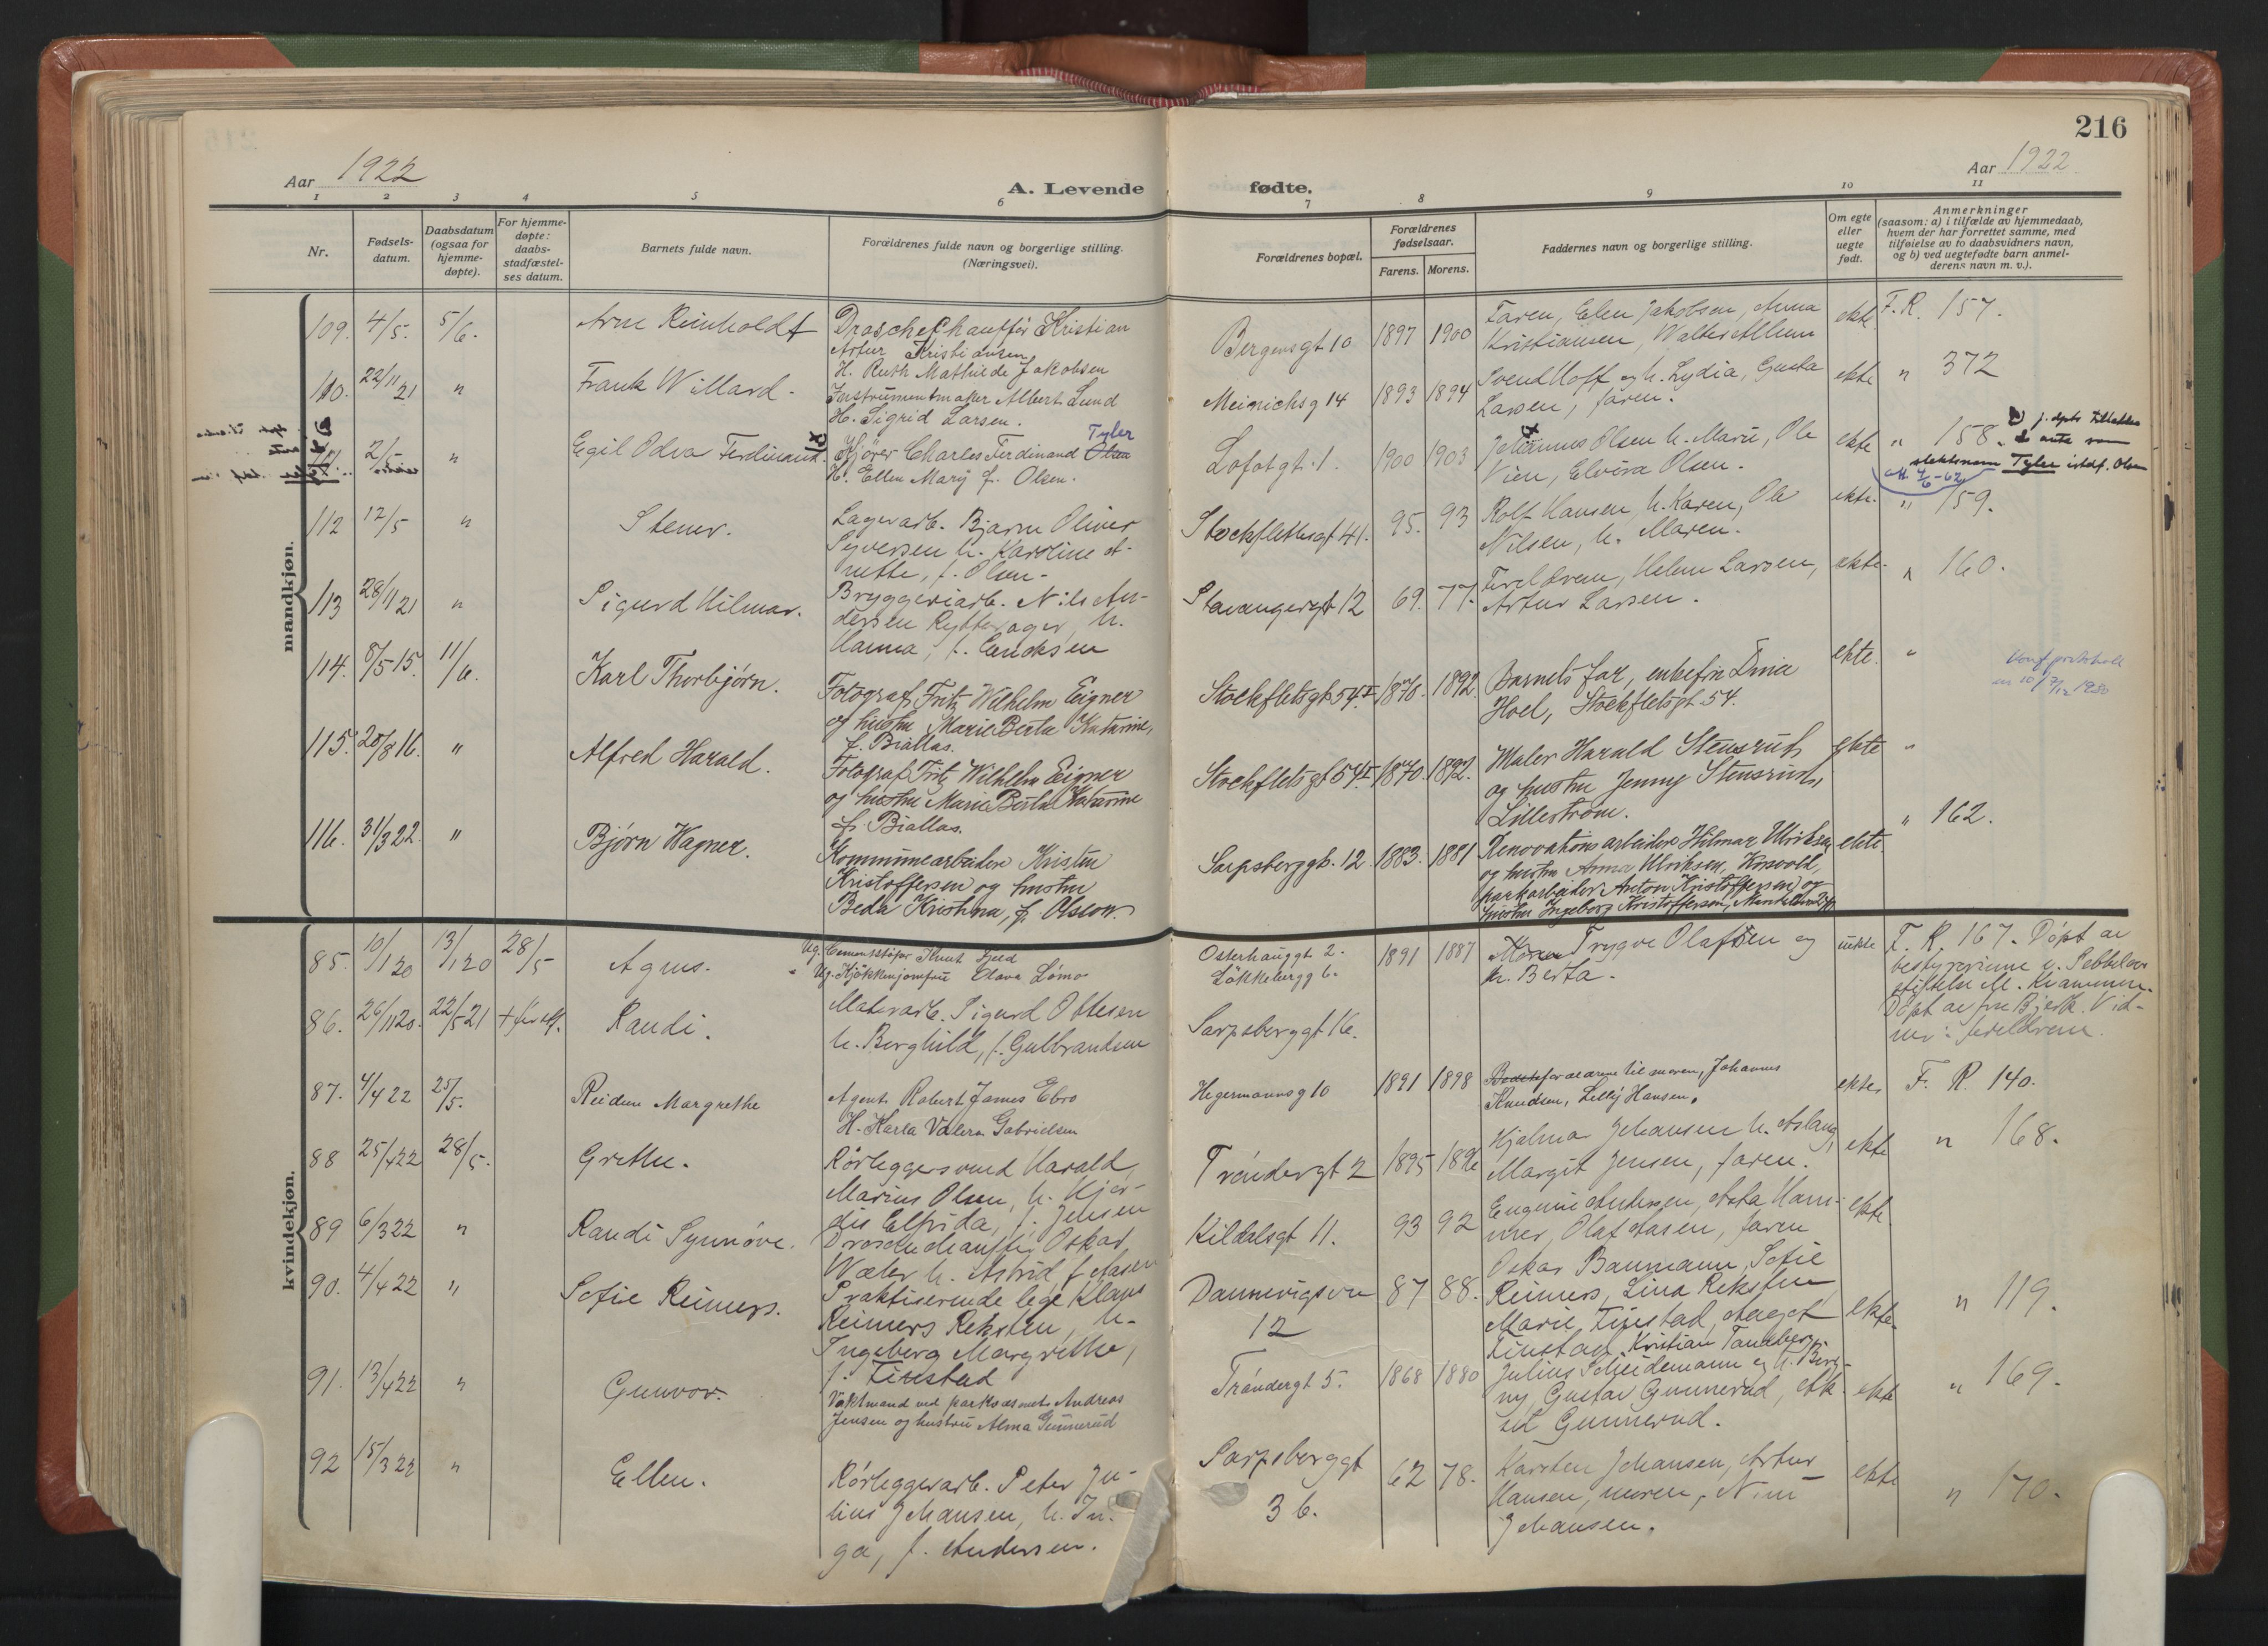 216
Aar 1922
A. Levende
fødte.
Aar 1922
1 2 3 4 5 6 7 8 9 10 11
Nr.
Fødsels-
datum.
Daabsdatum
(ogsaa for
hjemme-
døpte).
For hjemme-
døpte:
daabs-
stadfæstel-
ses datum.
Barnets fulde navn.
Forældrenes fulde navn og borgerlige stilling.
(Næringsvei).
Forældrenes bopæl.
Forældrenes
fødselsaar.
Farens. Morens.
Faddernes navn og borgerlige stilling.
Om egte
eller
uegte
født.
Anmerkninger
(saasom: a) i tilfælde av hjemmedaab,
hvem der har forrettet samme, med
tilføielse av to daabsvidners navn,
og b) ved uegtefødte barn anmel-
derens navn m. v.).
mandkjøn.
109. 4/5. 5/6. Arne Reinholdt
Droschechauffør Kristian
Artur Kristiansen
H. Ruth Mathilde Jakobsen
Bergensgt 10 1897 1900
Faren, Elen Jakobsen, Anna
Kristiansen, Walter
ekte F. R. 157.
110. 22/11 21 " Frank Willard.
Instrumentmaker Albert Lund
H. Sigrid Larsen.
Meinichsg 14 1893 1894
Svend Hoff og h. Lydia, Gusta
Larsen, faren.
ekte " 372
111 2/5 " Egil Odvar Ferdinand.
Kjører Charles Ferdinand Olsen Tyler
H. Ellen Mary f. Olsen.
Lofotgt. 1. 1900 1903
Johannes Olsen h. Marie, Ole
Vien, Elvira Olsen.
ekte " 158.
slektsnavn Tyler istdf. Olsen
112 12/5 " Stener.
Lagerarb. Bjarne Oliver
Syversen h. Karoline A-
nette, f. Olsen.
Stockflethsgt 41. 95. 93
Rolf Hansen h. Karen, Ole
Nilsen, h. Maren.
ekte. " 159.
113 28/11 21 " Sigurd Hilmar.
Bryggeriarb. Nils An-
dersen Rytterager, h.
Hanna, f. Eriksen
Stavangergt 12 69. 77.
Foreldrene, Helene Larsen,
Artur Larsen.
ekte. " 160.
114. 8/5-15. 11/6. Karl Thorbjørn.
Fotograf Fritz Wilhelm Eigner
og hustru Marie Berta Katarine,
f. Biallas.
Stockfletsgt 54 I 1870. 1892.
Barnets far, enkefru
Hoel, Stockfletsgt 54.
ekte. "
115. 20/8 16. " Alfred Harald.
Fotograf Fritz Wilhelm Eigner
og hustru Marie Berta Katarine
f. Biallas.
Stockfletsgt 54 I 1870. 1892.
Maler Harald Stensrud
og hustru Jenny Stensrud,
Lillestrøm.
ekte "
116. 31/3 22. " Bjørn Wagner.
Kommunearbeider Kristen
Kristoffersen og hustru
Beda Kristina, f. Olsson.
Sarpsborggt. 12 1883. 1881
Renovationsarbeider Hilmar Ulriksen
og hustru Anna Ulriksen,
parkarbeider Anton Kristoffersen og
hustru Ingeborg Kristoffersen,
ekte. " 162.
kvindekjøn.
85. 10/1 20 13/1 20 28/5 Agnes.
Ug. Cementstøper Knut Fjeld
Ug. Kjøkkenjomfru Olava Lømo
Osterhausgt 2.
Løkkeberg g 6.
1891 1887
Moren Trygve Olafsen og
h. Berta.
uekte F. R. 167. Døpt av
bestyrerinne v. Sebbelows
stiftelse M. Kvammen.
86. 26/11 20. 22/5 21 Randi.
Malerarb. Sigurd Ottesen
h. Borghild, f. Gulbrandsen
Sarpsborggt 16.
Døpt av fru Bjerk. Vid-
ner: foreldrene.
87. 4/4 22 25/5. Reidun Margrethe
Agent Robert James Ebro
H. Karla Valera Gabrielsen
Hegermannsg 10 1891 1898
Bedsteforældrene til moren, Johannes
Knudsen, Lilly Hansen.
ekte. F. R. 140.
88 25/4 22 28/5. Grethe.
Rørleggersvend Harald
Marius Olsen, h. Hjør-
dis Elfrida, f. Jensen
Trøndergt 2 1895 1896
Hjalmar Johansen h. Aslaug,
Margit Jensen, faren.
ekte " 168.
89 6/3 22 " Randi Synnøve.
Droschechauffør Oskar
Wæler h. Astrid f. Aasen
Kildalsgt 11. 93 92
Eugenie Andersen, Asta Ham-
mer, Olaf Aasen, faren
ekte
90. 4/4 22 " Sofie Reimers.
Praktiserende lege Klaus
Reimers Reksten, h.
Ingeborg Margrethe,
f. Finstad
Dannevigsvn
12
87 88.
Oskar Baumann, Sofie
Reimers, Lina Reksten
Marie Finstad, Aagot
Finstad, Kristian Tandberg.
ekte. " 119.
91. 13/4 22 " Gunvor.
Vaktmand ved parkvæsenet Andreas
Jensen og hustru Alma Gunnerud
Trøndergt 5. 1868 1880
Julius Scheidemann og h. Borg-
ny, Gustav Gunnerud,
Gunnerud.
ekte " 169.
92 15/3 22 " Ellen.
Rørleggerarb. Peter Ju-
lius Johansen, h. In-
ga, f. Andersen.
Sarpsborggt
36.
62 78.
Karsten Johansen, Artur
Hansen, moren,
Johansen.
ekte " 170.